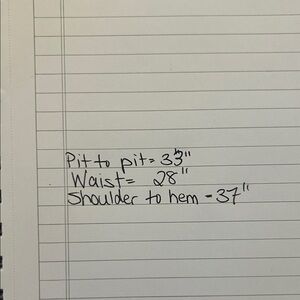 Pit to pit = 33"
Waist = 28"
Shoulder to hem - 37"